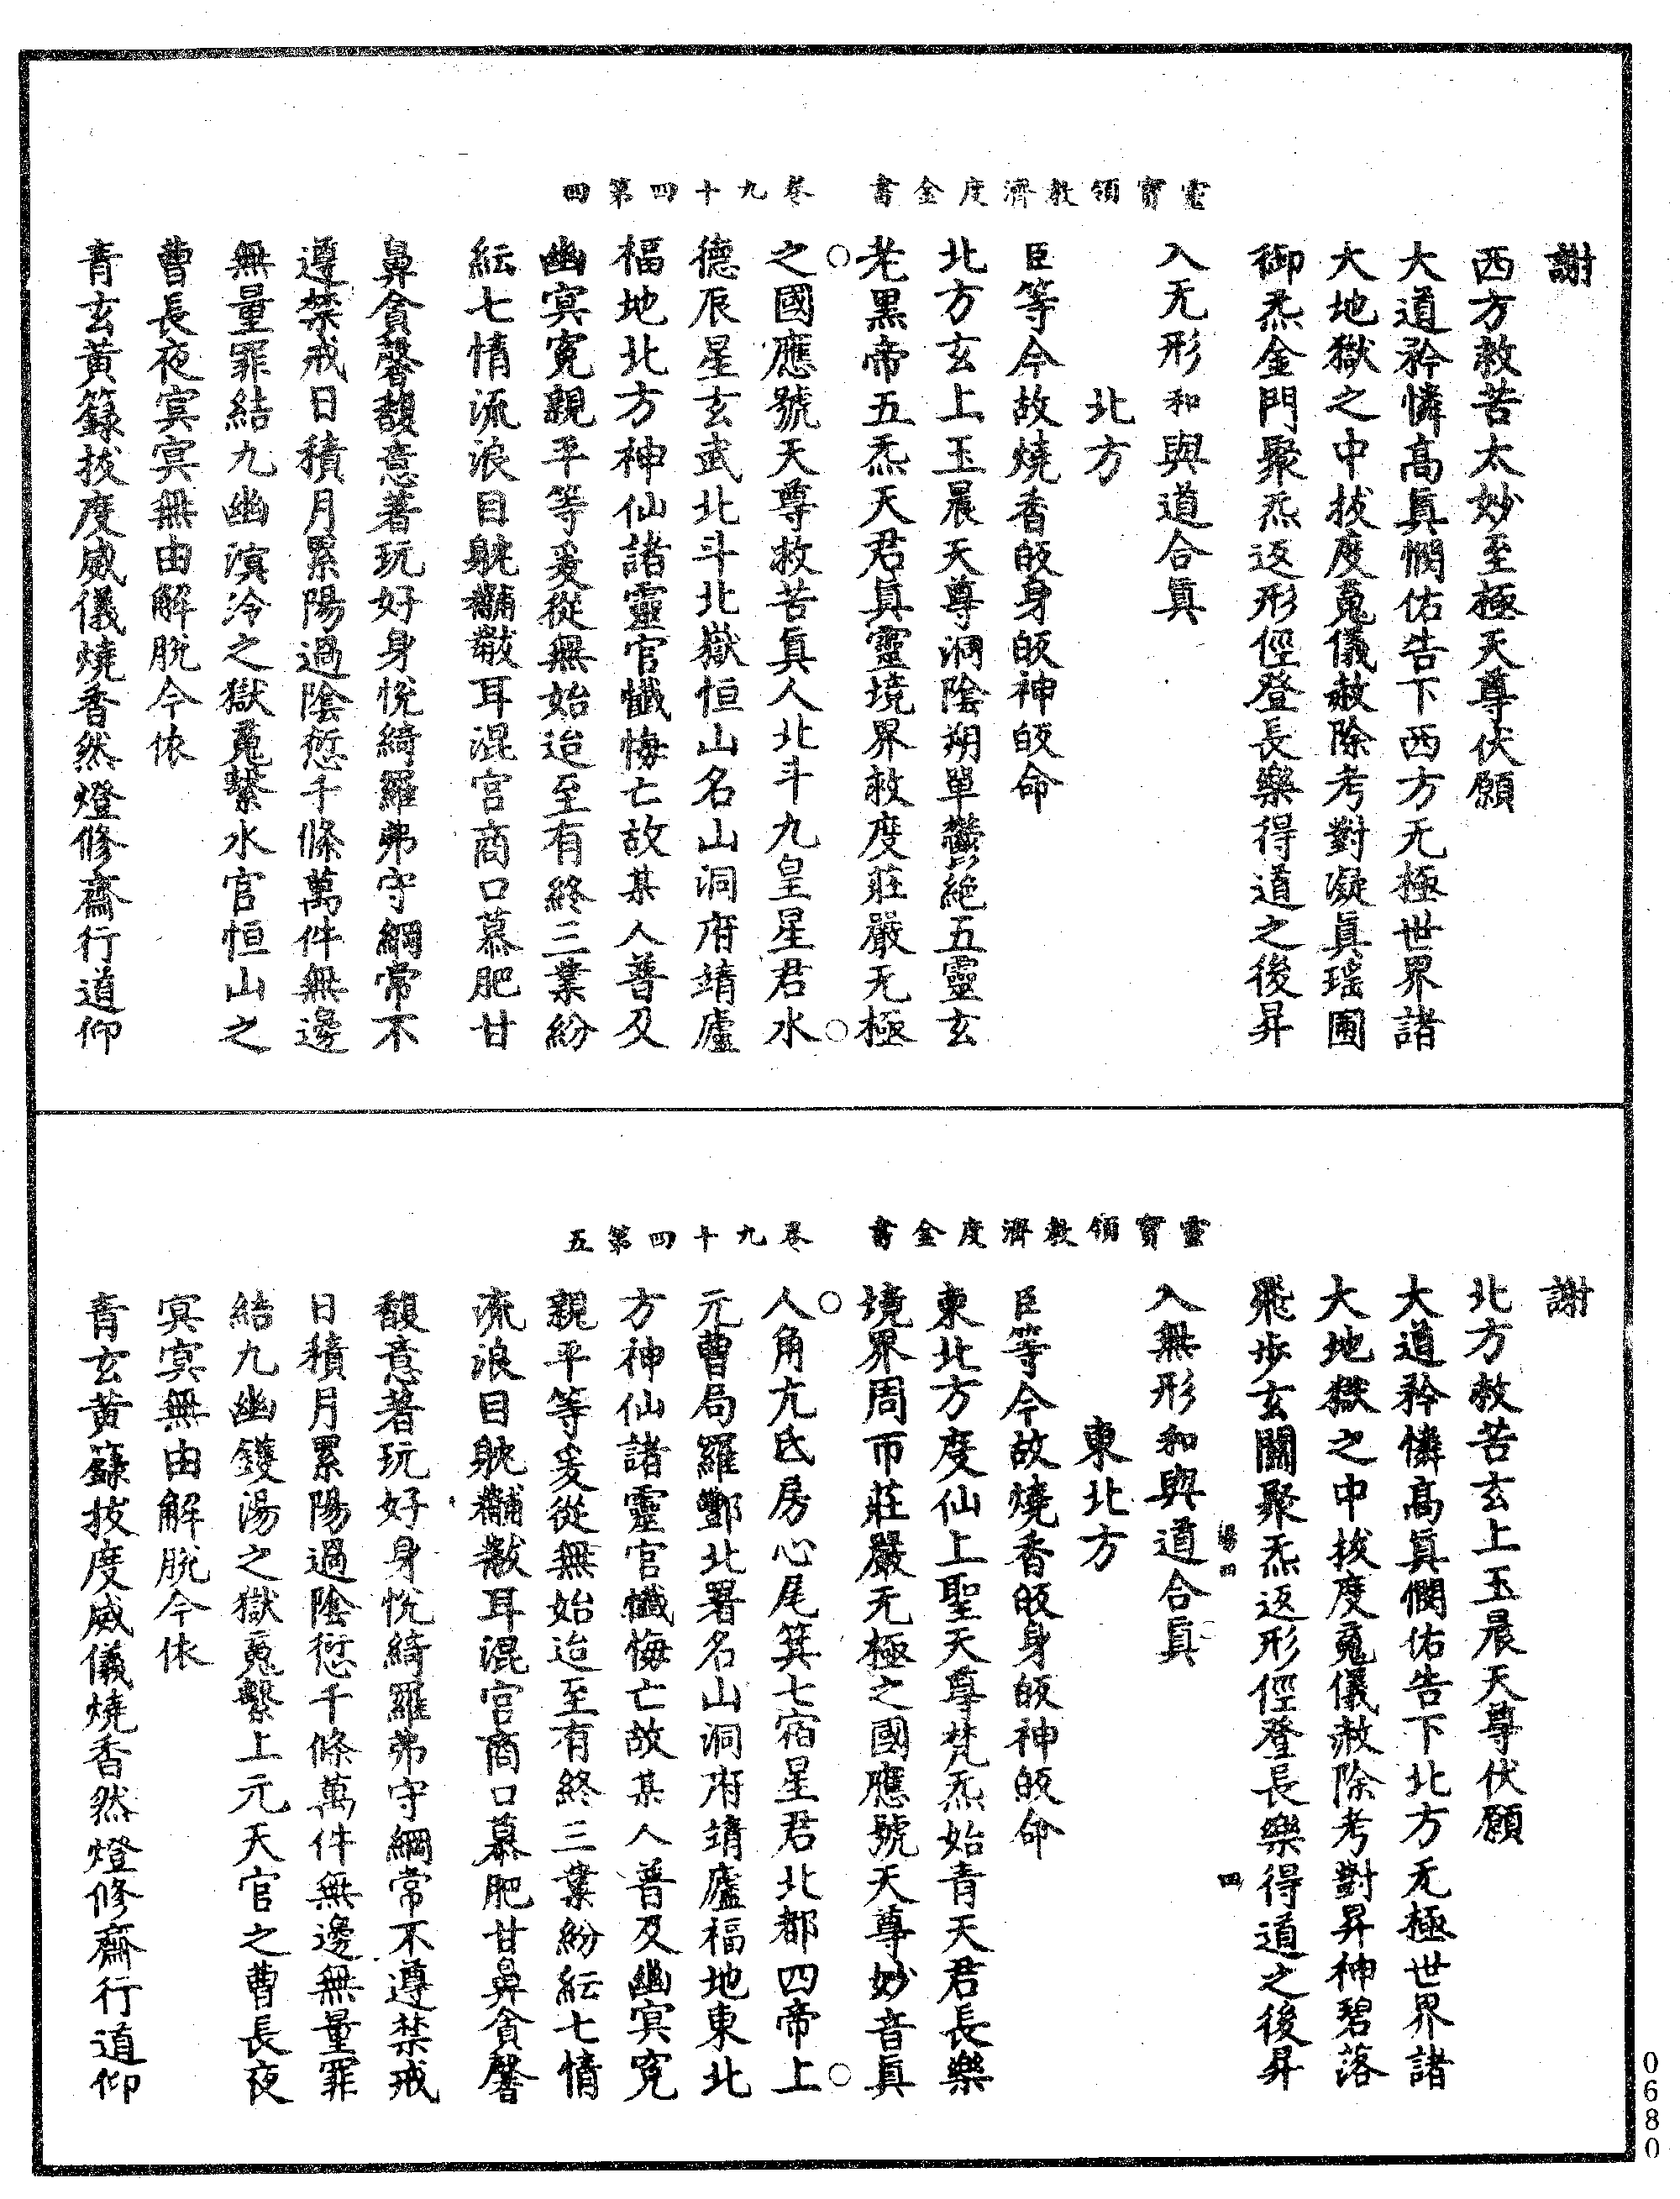 靈寶領教濟度金書　卷九十四第四
謝
西方救苦太妙至極天尊伏願
大道矜憐高眞憫佑告下西方无極世界諸
大地獄之中拔度䰟儀赦除考對凝眞瑤圃
御炁金門聚炁返形徑登長樂得道之後昇
入无形和與道合眞
北方
臣等今故燒香皈身皈神皈命
北方玄上玉晨天尊洞陰朔單鬱絕五靈玄
老黑帝五炁天君眞靈境界救度莊嚴无極
之國應號天尊救苦眞人北斗九皇星君水
德辰星玄武北斗北嶽恒山名山洞府靖廬
福地北方神仙諸靈官懺悔亡故某人普及
幽冥寃親平等爰從無始迨至有終三業紛
紜七情流浪目躭黼黻耳混宮商口慕肥甘
鼻貪馨馥意著玩好身悅綺羅弗守綱常不
遵禁戒日積月累陽過陰愆千條萬件無邊
無量罪結九幽溟泠之獄䰟繫水官恒山之
曹長夜冥冥無由解脫今依
青玄黃籙拔度威儀燒香然燈修齋行道仰
靈寶領教濟度金書　卷九十四第五
謝
北方救苦玄上玉晨天尊伏願
大道矜憐高眞憫佑告下北方无極世界諸
大地獄之中拔度䰟儀赦除考對昇神碧落
飛步玄關聚炁返形徑登長樂得道之後昇
四
入無形和與道合眞
東北方
臣等今故燒香皈身皈神皈命
東北方度仙上聖天尊梵炁始青天君長樂
境界周帀莊嚴无極之國應號天尊妙音眞
人角亢氐房心尾箕七宿星君北都四帝上
元曹局羅酆北署名山洞府靖廬福地東北
方神仙諸靈官懺悔亡故某人普及幽冥寃
親平等爰從無始迨至有終三業紛紜七情
流浪目躭黼黻耳混宮商口慕肥甘鼻貪馨
馥意著玩好身悅綺羅弗守綱常不遵禁戒
日積月累陽過陰愆千條萬件無邊無量罪
結九幽鑊湯之獄䰟繫上元天官之曹長夜
冥冥無由解脫今依
青玄黃籙拔度威儀燒香然燈修齋行道仰
0680